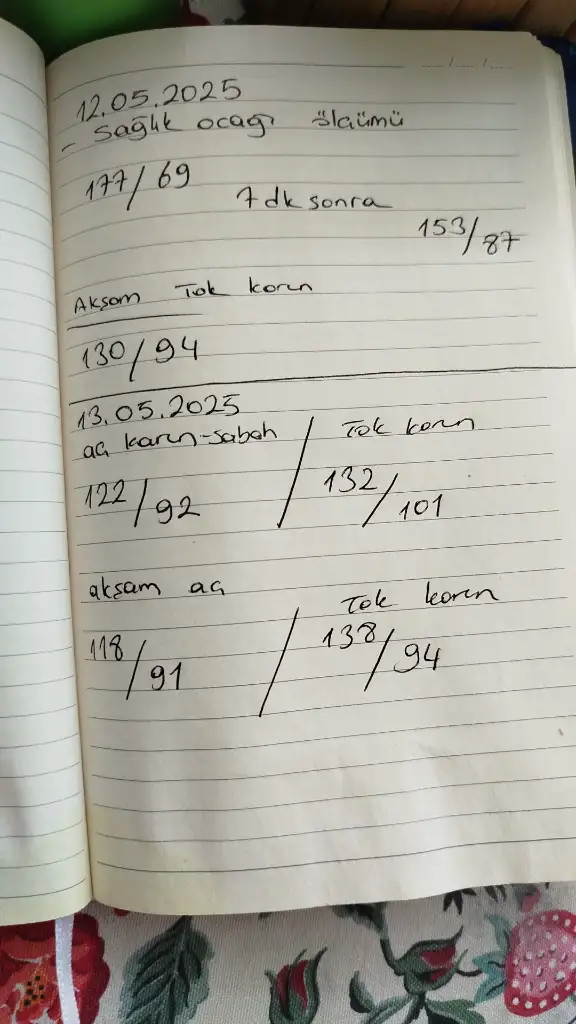 12.05.2025
- Sağlık ocağı ölçümü
177/69
7 dk sonra
153/87
Akşam Tok karın
130/94
13.05.2025
aç karın-sabah / Tok karın
122/92
132/101
akşam aç / Tok karın
118/91
138/94